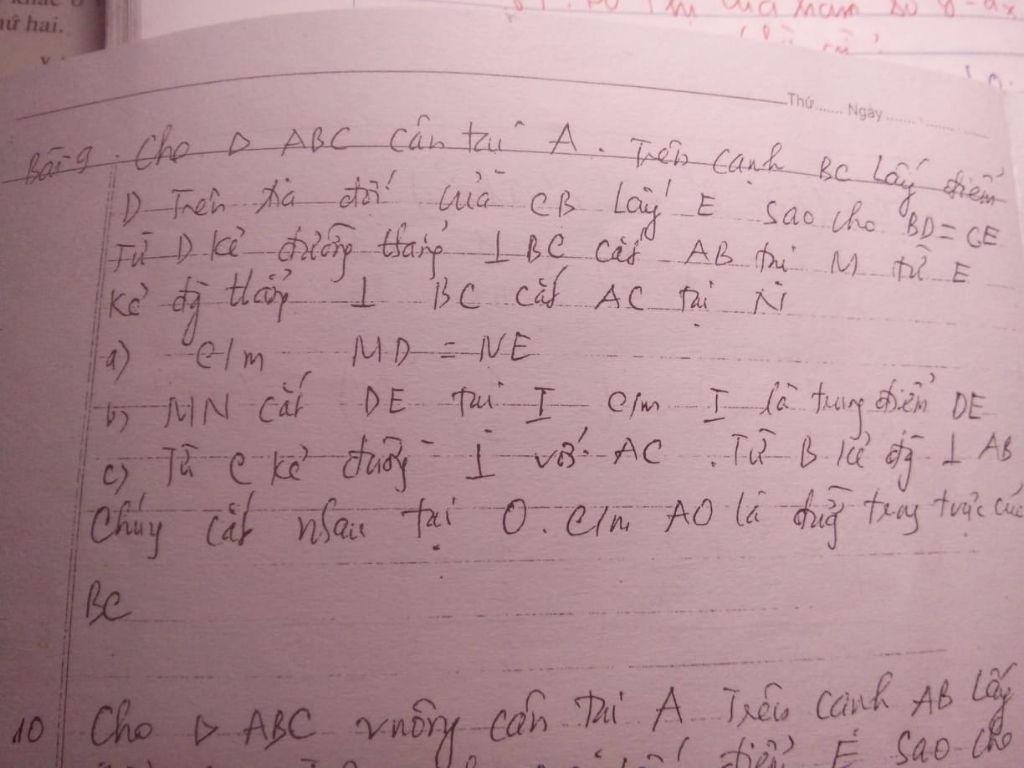 ứ hai.
Thứ...... Ngày
Bài 9. Cho Δ ABC cân tại A. Trên cạnh BC lấy điểm
D Trên tia đối của CB lấy E sao cho BD = CE
Từ D kẻ đường thẳng ⊥ BC cắt AB tại M từ E
kẻ đg thẳng ⊥ BC cắt AC tại N
a) c/m MD = NE
b) MN cắt DE tại I c/m I là trung điểm DE
c) Từ C kẻ đường ⊥ với AC. Từ B kẻ đg ⊥ AB
Chúng cắt nhau tại O. c/m AO là đường trung trực của
BC
10 Cho Δ ABC vuông cân tại A Trên cạnh AB lấy
điểm E sao cho